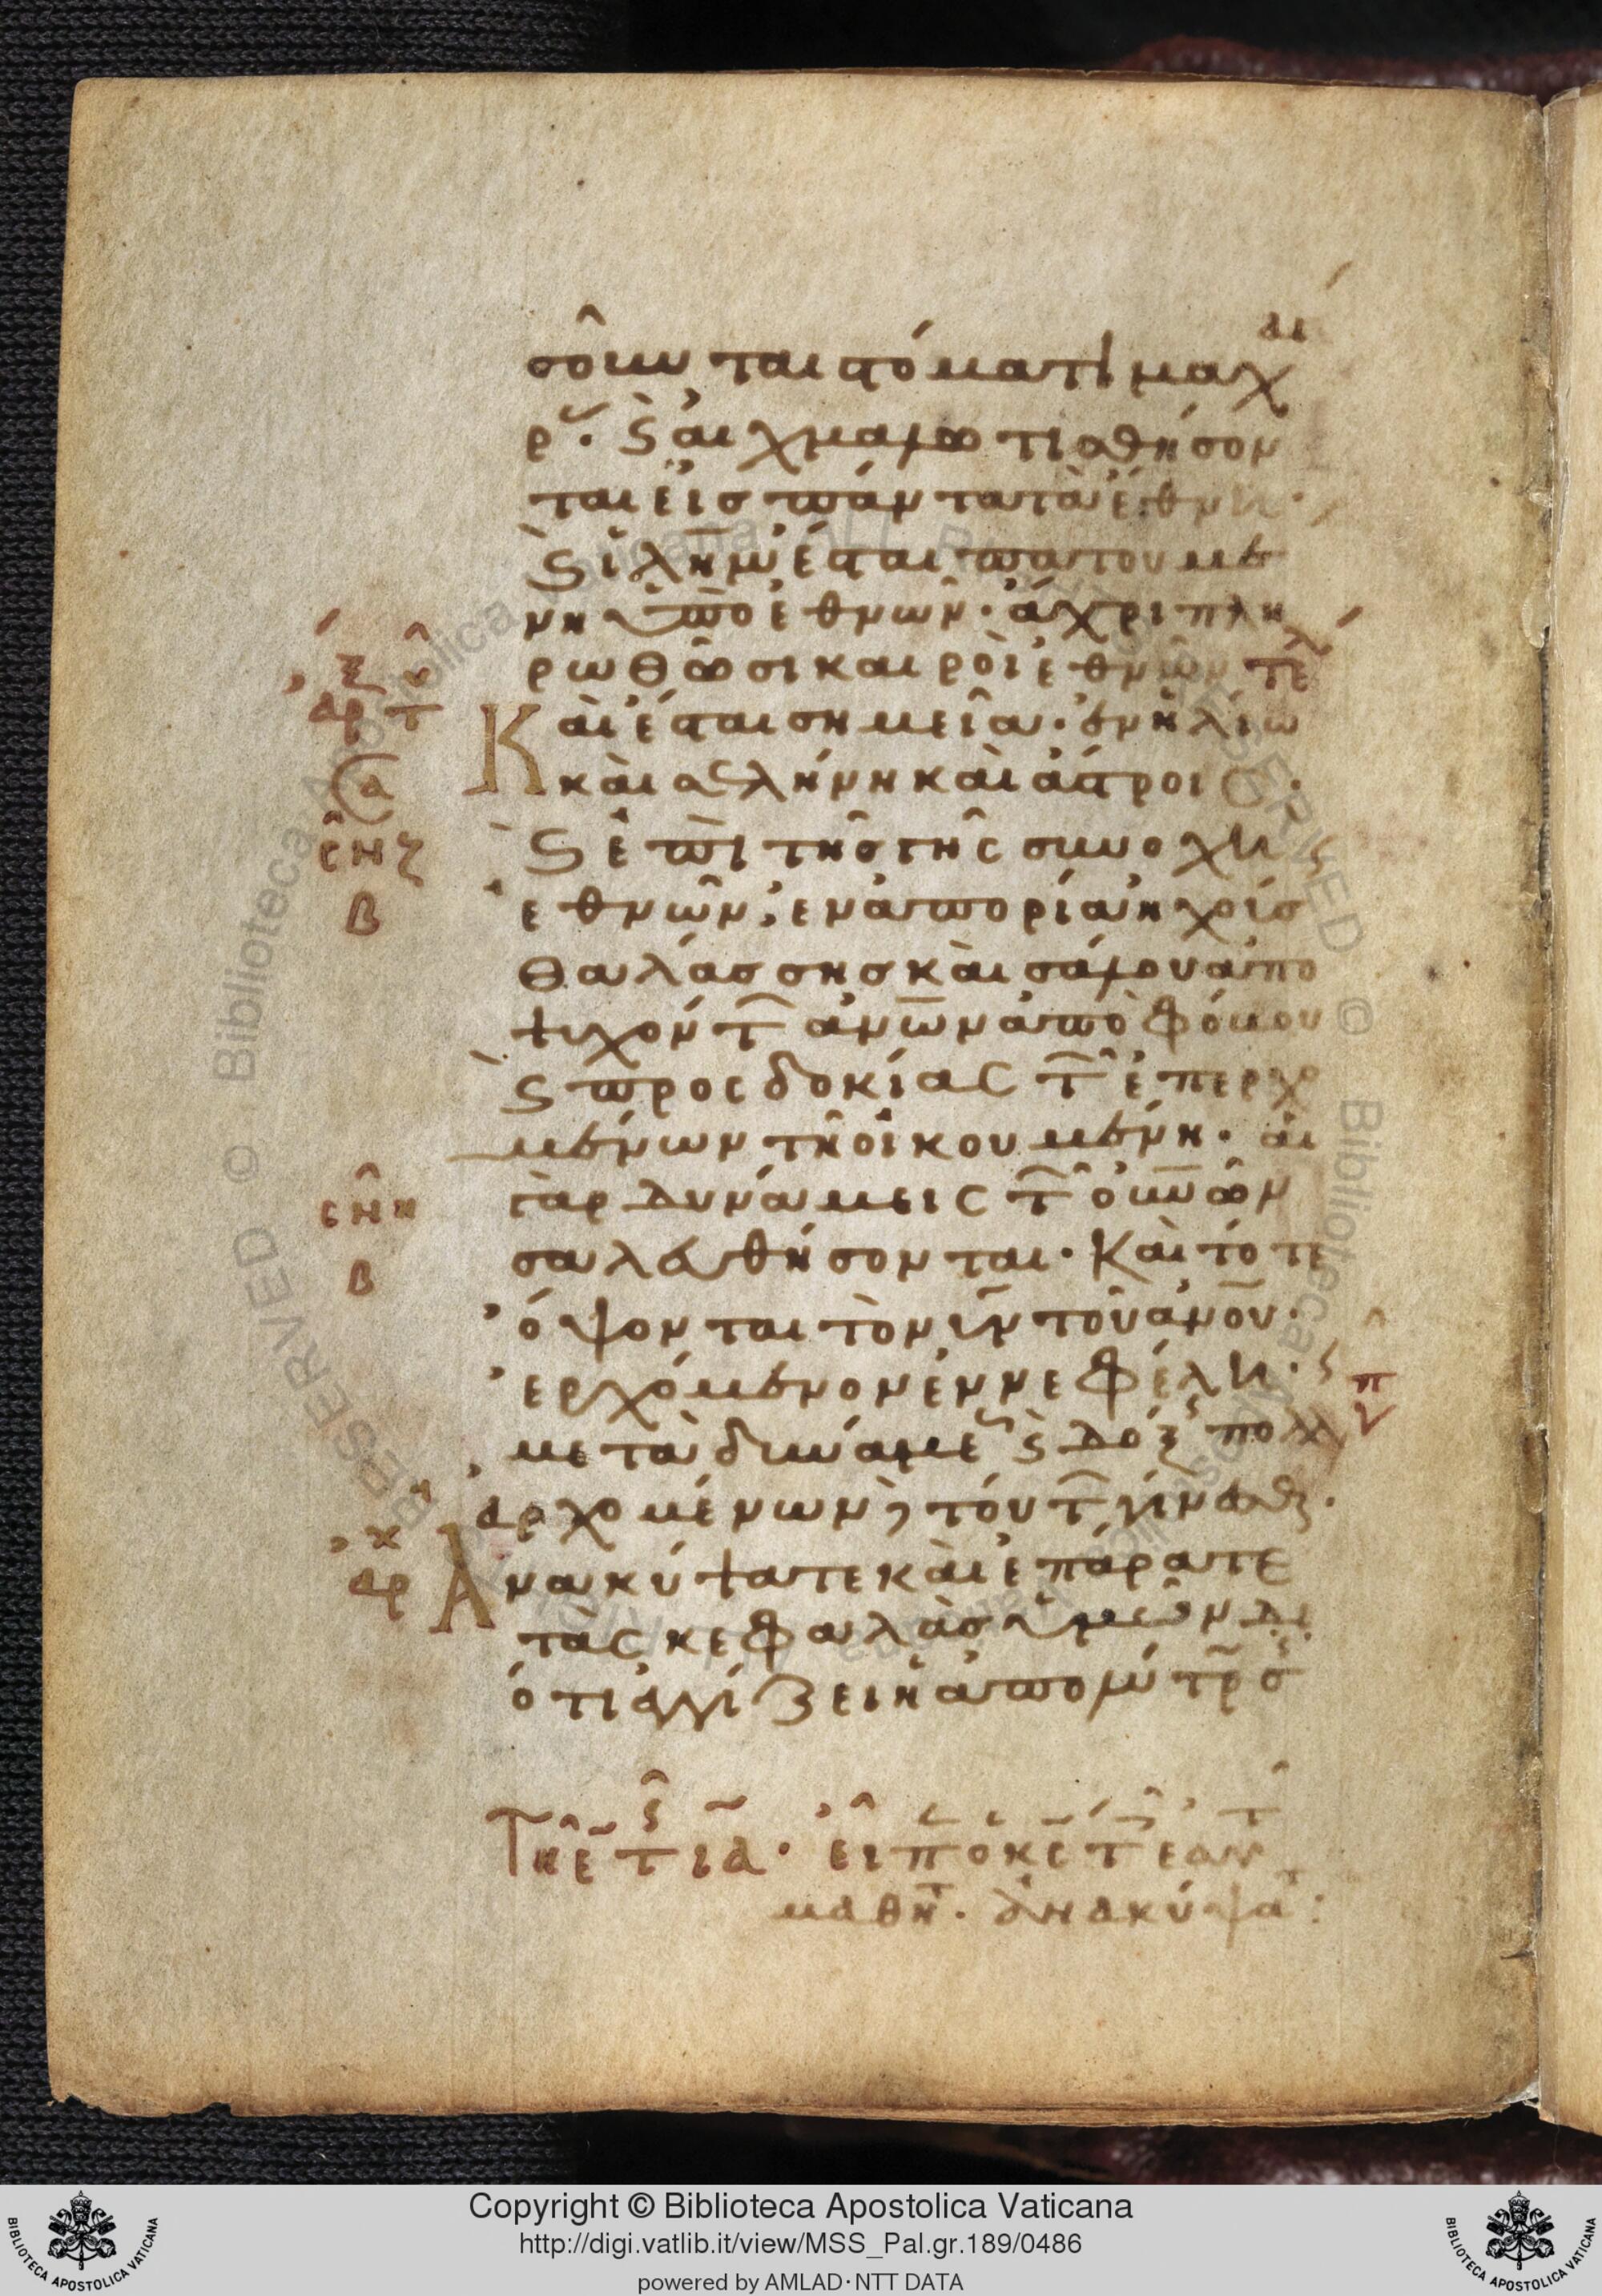 σοῦνται στόματι μαχαί
ρ ϛ αἰχμαλωτισθήσον
ται εἰς πάντα τὰ ἔθνη·
ϛ ἰλημ ἔσται πατουμε
νη ὑπὸ ἐθνῶν· ἄχρι πλη
ρωθῶσι καιροὶ ἐθνῶν τε
Καὶ ἔσται σημεῖα· ἐν ἡλίω
καὶ σελήνη καὶ ἄστροις·
ϛ ἐπὶ τῆς γῆς συνοχὴ
ἐθνῶν, ἐν ἀπορία ἠχοῖς
θαλάσσης καὶ σάλου ἀπο
ψυχόντ ἀνων ἀπὸ φόβου
ϛ προσδοκίας τ ἐπερχο
μένων τῆ οἰκουμένη· αἱ
γὰρ δυνάμεις τ οὐνῶν
σαλευθήσονται· Καὶ τότε
ὄψονται τὸν υν τοῦ ἀνου·
ἐρχόμενον ἐν νεφέλη· ϛ
μετὰ δυνάμε ϛ δόξ πολλ
ἀρχομένων τούτ γίνεσθ·
Ἀνακύψατε καὶ ἐπάρατε
τὰς κεφαλὰς ὑμῶν δι
ότι ἀγγίζει ἡ ἀπολύτρ
Τῆ ε τ ια· εἰπ ὁ κς τ ε
μαθη· ἀνακύψα:
αρ
α
σημ ζ
β
σημ η
β
αρ
Copyright © Biblioteca Apostolica Vaticana
http://digi.vatlib.it/view/MSS_Pal.gr.189/0486
powered by AMLAD·NTT DATA
BIBLIOTECA APOSTOLICA VATICANA
BIBLIOTECA APOSTOLICA VATICANA